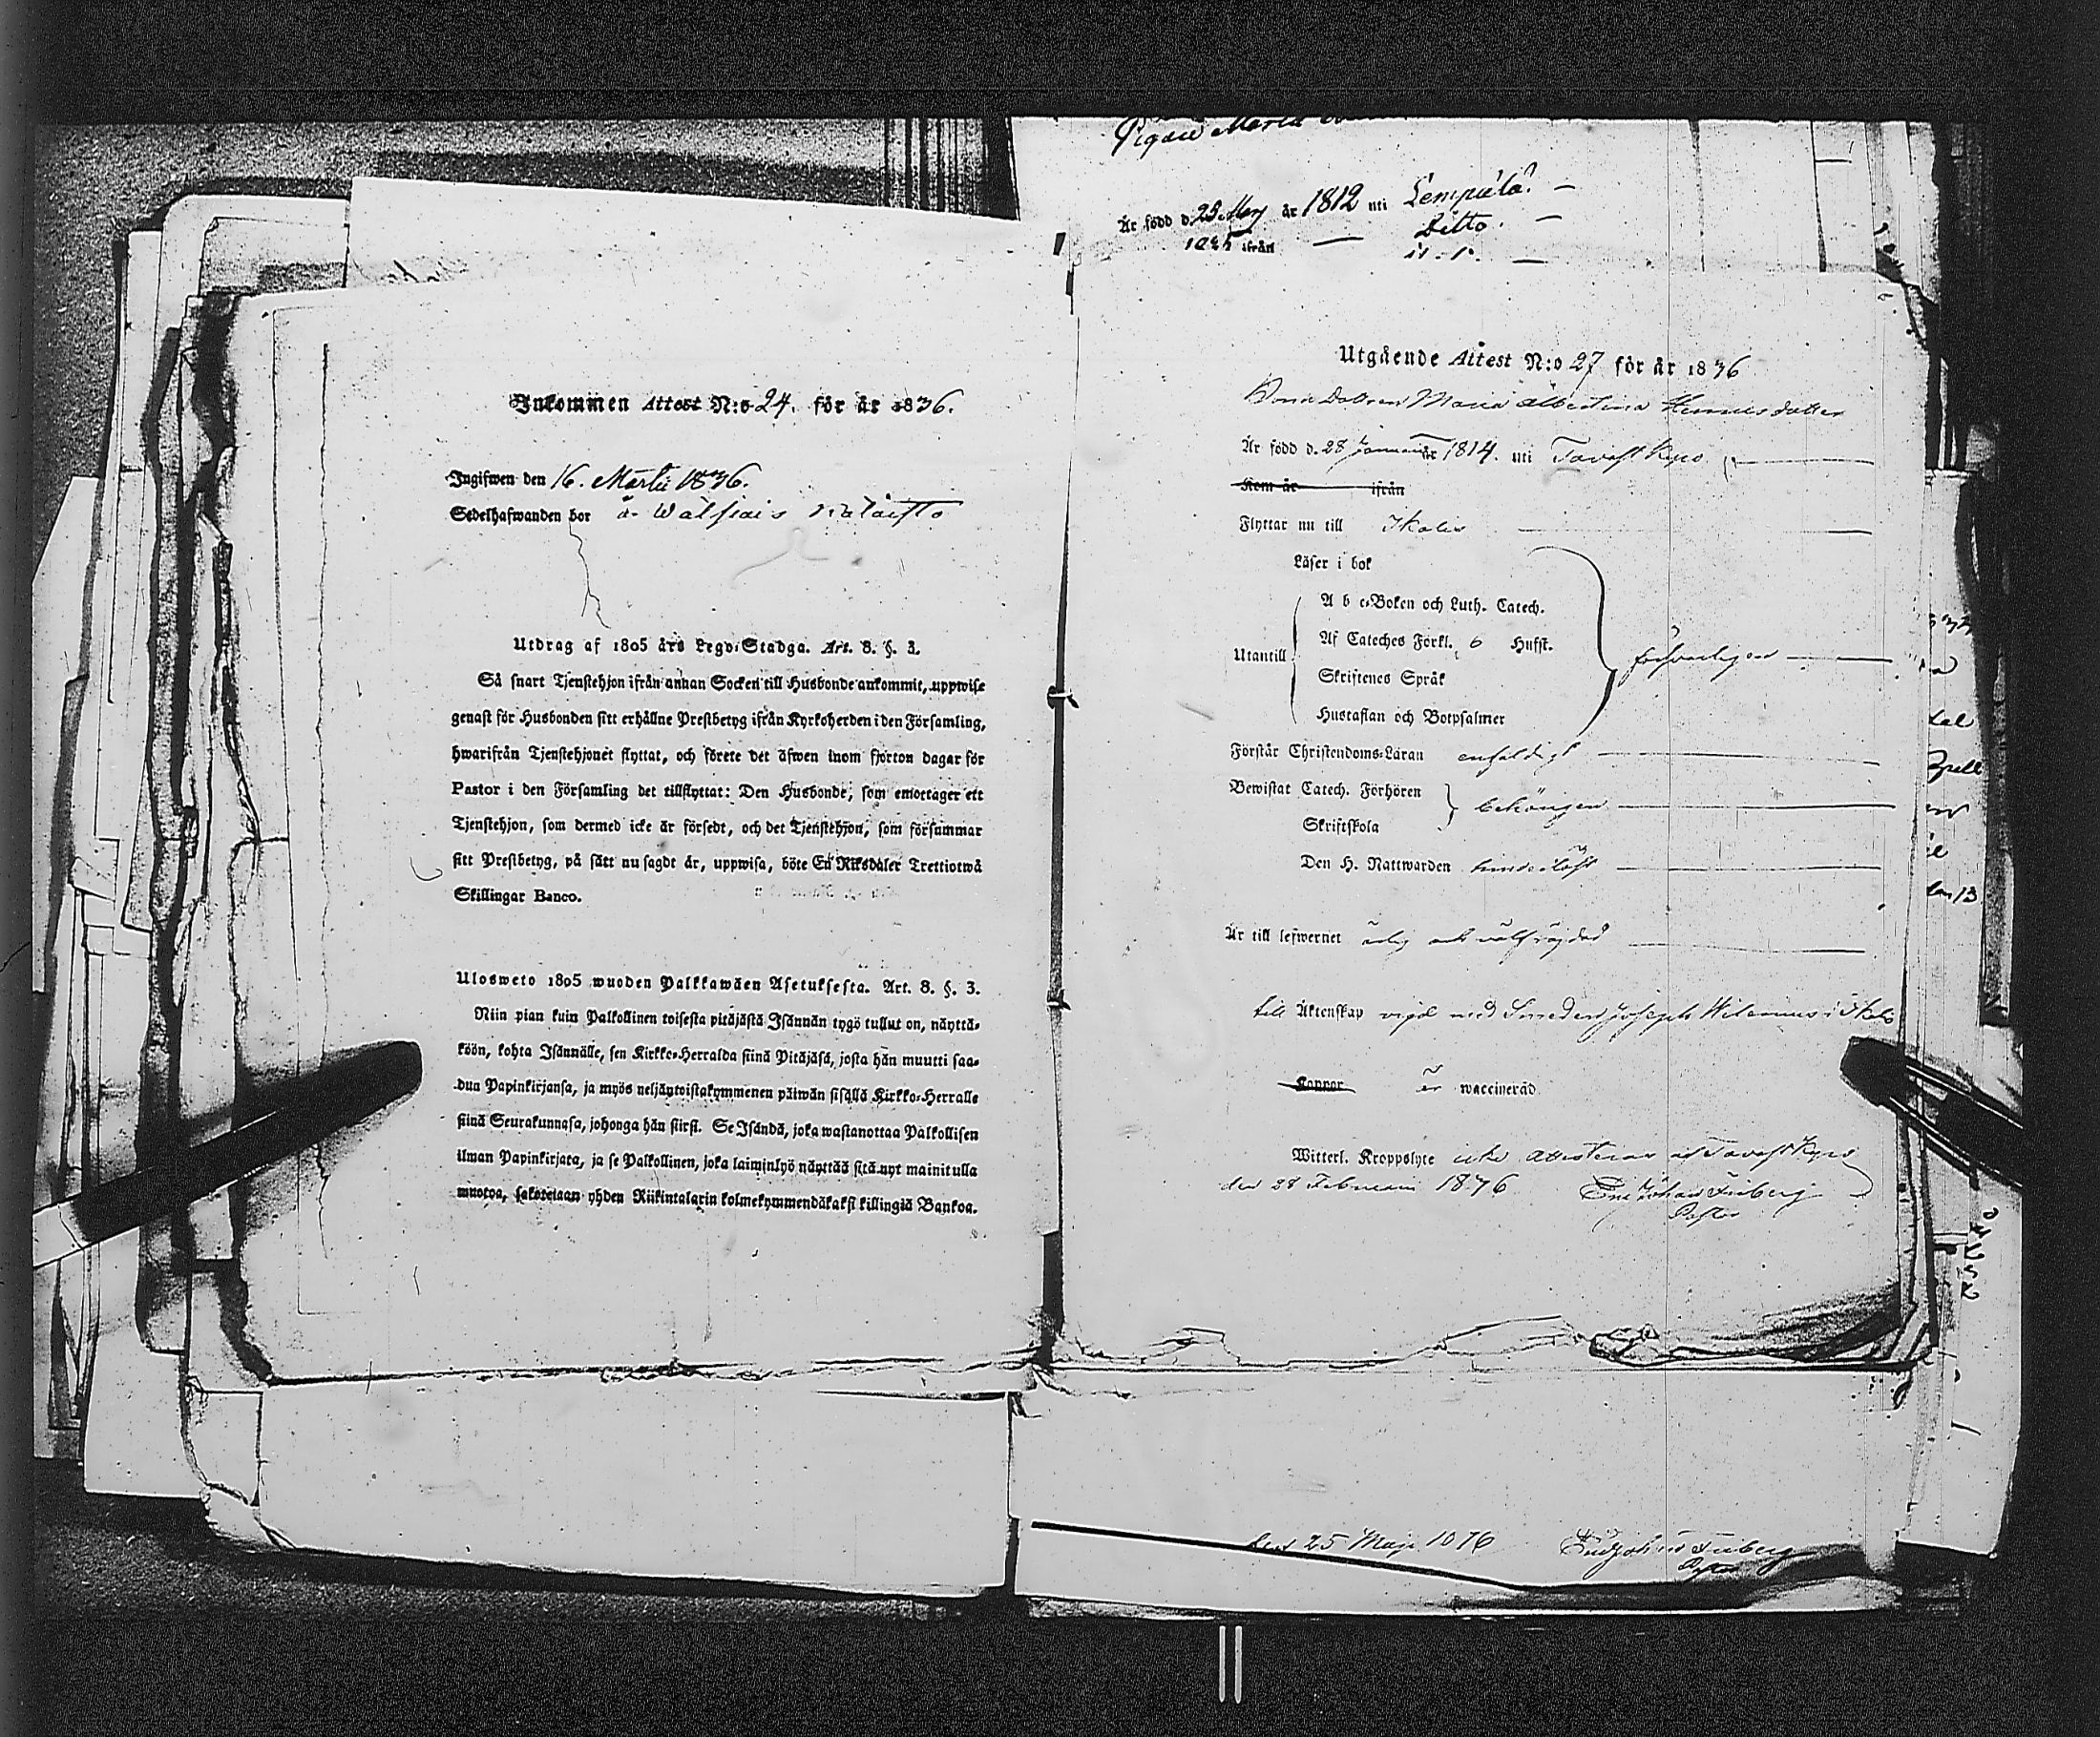 Inkommen Attest N:o 24. för år 1836.
Ingifwen den 16. Martii 1836.
Sedelhafwanden bor å
Utdrag af 1805 års Lego-Stadga. Art. 8. §. 3.
Så snart Tjenstehjon ifrån annan Socken till Husbonde ankommit, uppwise
genast för Husbonden sitt erhållne Prestbetyg ifrån Kyrkoherden i den Församling,
hwarifrån Tjenstehjonet flyttat, och förete det äfwen inom fjorton dagar för
Pastor i den Församling det tillflyttat: Den Husbonde, som emottager ett
Tjenstehjon, som dermed icke är försedt, och det Tjenstehjon, som försummar
sitt Prestbetyg, på sätt nu sagdt är, uppwisa, böte En Riksdaler Trettiotwå
Skillingar Banco.
Ulosweto 1805 wuoden Palkkawäen Asetuksesta. Art. 8. §. 3.
Niin pian kuin Palkollinen toisesta pitäjästä Isännän tygö tullut on, näyttä-
köön, kohta Isännälle, sen Kirkko-Herralda siinä Pitäjäsä, josta hän muutti saa-
dun Papinkirjansa, ja myös neljäntoistakymmenen päiwän sisällä Kirkko-Herralle
siinä Seurakunnasa, johonga hän siirsi. Se Isändä, joka wastanottaa Palkollisen
ilman Papinkirjata, ja se Palkollinen, joka laiminlyö näyttää sitä nyt mainitulla
muotoa, sakotetaan yhden Riikintalarin kolmekymmendäkaksi killingiä Bankoa.
Pigan Maria
Är född d. 23 Maj år 1812 uti Lempälä. —
ifrån — Ditto. —
Utgående Attest N:o 27 för år 1836
Bonde Dottren Maria Albertina Henricsdotter
Är född d. 28 Januarii år 1814. uti Tavastkyro
Kom år ifrån
Flyttar nu till Ikalis
Läser i bok
Utantill
A b c-Boken och Luth. Catech.
Af Cateches Förkl. 6 Hufst.
Skriftenes Språk
Hustaflan och Botpsalmer
försvarligen
Förstår Christendoms-Läran enfaldigt
Bewistat Catech. Förhören
Skriftskola
behörigen
Den H. Nattwarden hinderlöst
Är till lefwernet ärlig och välfräjdad
till Äktenskap vigd med Joseph i Ikalis
Koppor är waccinerad
Witterl. Kroppslyte icke Attesterar af Tavastkyro
den 28 Februarii 1836 Johan Friberg
Pastor
den 25 Maji 1836 Johan Friberg
Pastor